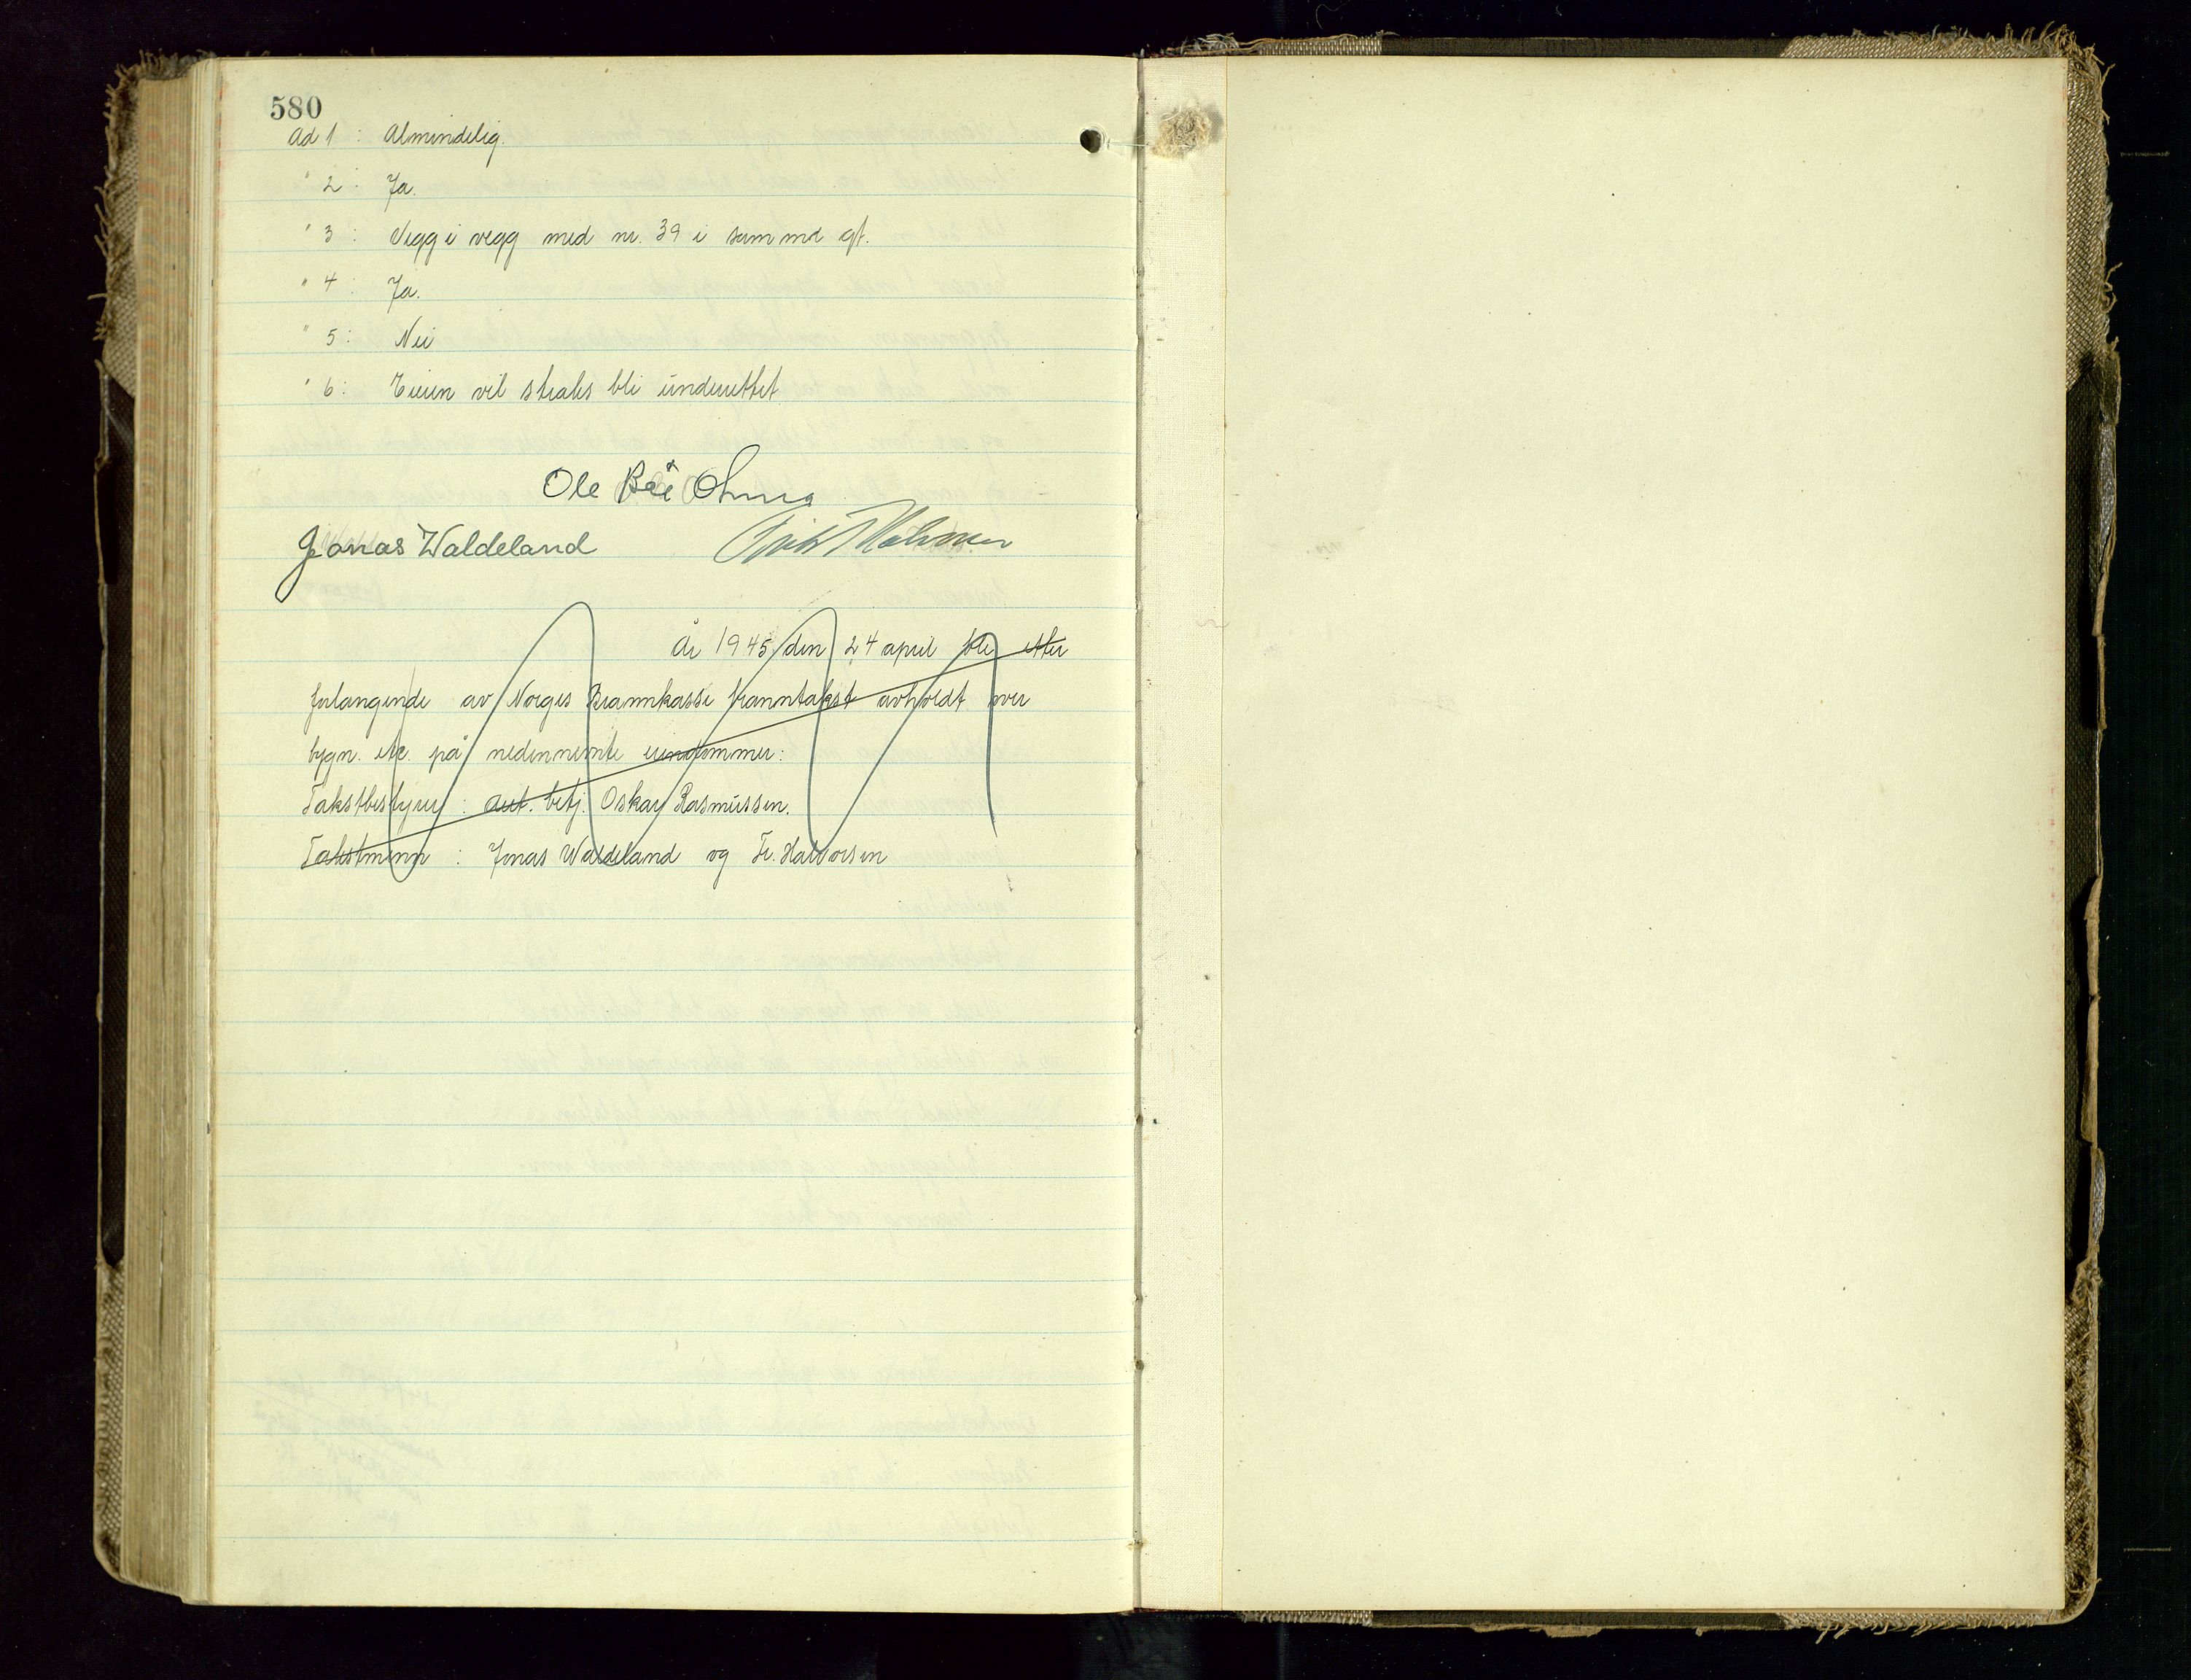 580
Ad 1 : Almindelig.
" 2 : Ja.
" 3 : Vegg i vegg med nr. 39 i samme gt.
" 4 : Ja.
" 5 : Nei
" 6 : Eieren vil straks bli underettet
Ole
Jonas Waldeland
År 1945 den 24 april ble etter
forlangende av Norges Brannkasse branntakst avholdt over
bygn. etc. på nedennemte eiendommer:
Takstbestyrer : aut. betj. Oskar Rasmussen.
Takstmenn : Jonas Waldeland og Fr. Halvorsen